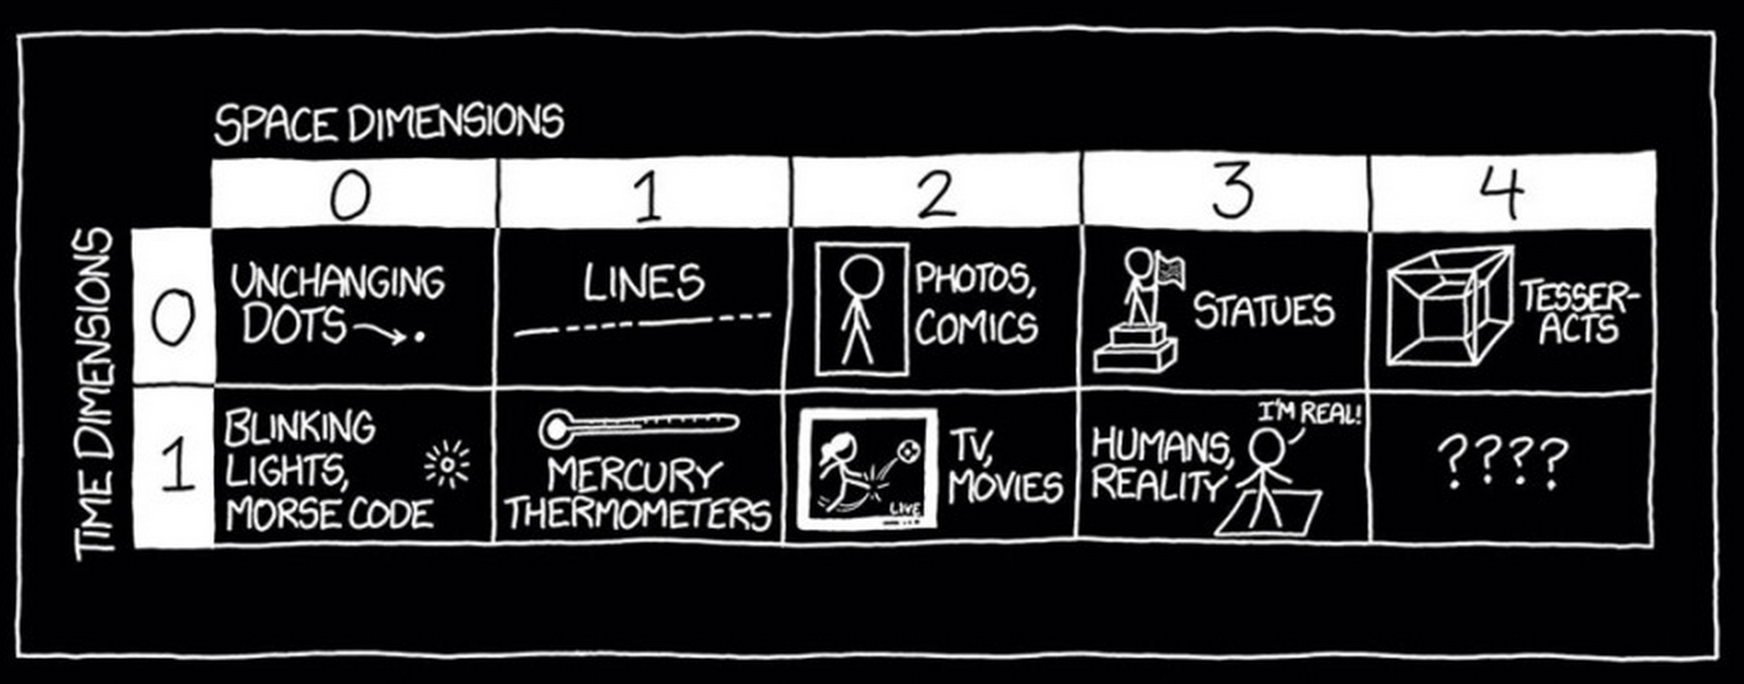 SPACE DIMENSIONS
0
1
2
3
4
TIME DIMENSIONS
0
UNCHANGING
DOTS
LINES
PHOTOS,
COMICS
STATUES
TESSER-
ACTS
1
BLINKING
LIGHTS,
MORSE CODE
MERCURY
THERMOMETERS
LIVE
TV,
MOVIES
HUMANS,
REALITY
I'M REAL!
????